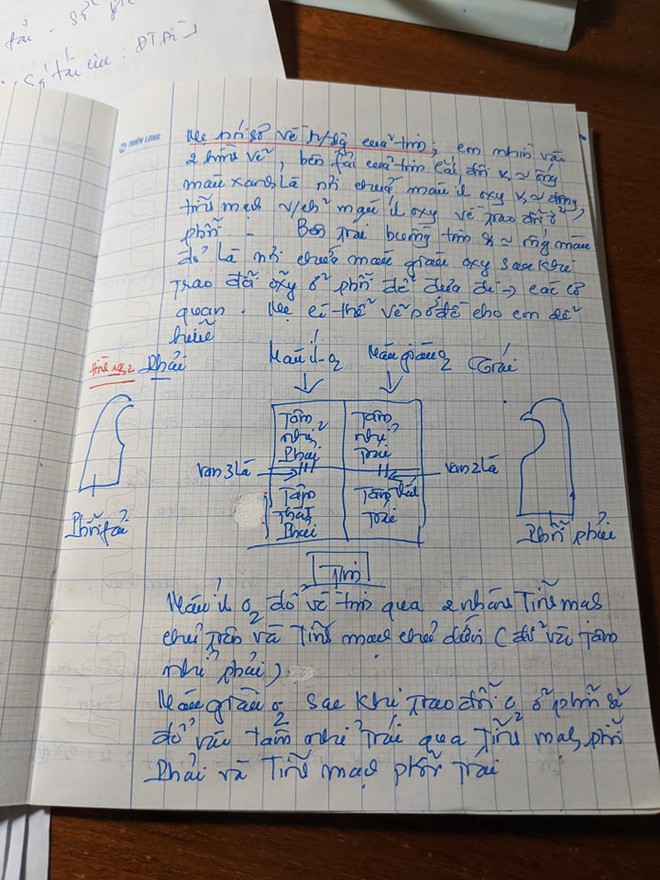 tải - Số
THIÊN LONG
Mẹ nói sơ về h/động của tim, em nhìn vào
2 hình vẽ, bên fải của tim cắt đôi
màu xanh là nơi chứa máu ít oxy
tĩnh mạch v/ch² máu ít oxy về trao đổi ở
phổi - Bên trái buồng tim màu
đỏ là nơi chứa máu giàu oxy sau khi
trao đổi oxy ở phổi để đưa đi → các cơ
quan. Mẹ có thể vẽ sơ đồ cho em dễ
hiểu
Phải Máu ít O2 Máu giàu O2 Trái
Tâm nhĩ Phải
Tâm nhĩ Trái
van 3 Lá
van 2 Lá
Tâm thất Phải
Tâm thất Trái
Phổi fải
Phổi phải
Tim
Máu ít O2 đổ về tim qua 2 nhánh Tĩnh mạch
chủ trên và Tĩnh mạch chủ dưới (đổ vào tâm
nhĩ phải)
Máu giàu O2 sau khi trao đổi ở phổi sẽ
đổ vào tâm nhĩ trái qua Tĩnh mạch phổi
Phải và Tĩnh mạch phổi Trái